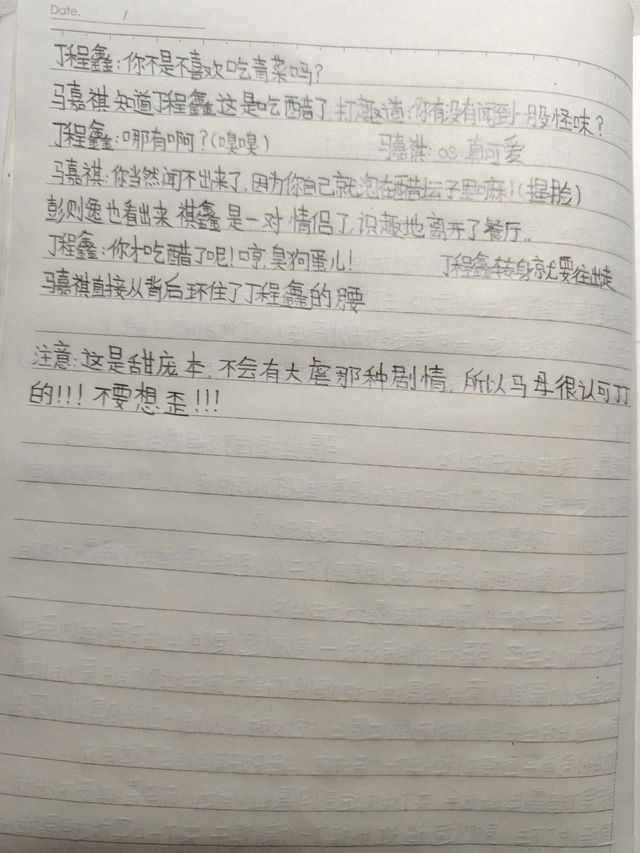 Date. /
丁程鑫:你不是不喜欢吃青菜吗?
马嘉祺知道丁程鑫这是吃醋了,打趣道:你有没有闻到一股怪味?
丁程鑫:哪有啊?(嗅嗅) 马嘉祺:os:真可爱
马嘉祺:你当然闻不出来了,因为你自己就泡在醋坛子里嘛!(捏脸)
彭则逸也看出来祺鑫是一对情侣了,识趣地离开了餐厅..
丁程鑫:你才吃醋了呢!哼,臭狗蛋儿! 丁程鑫转身就要往出走
马嘉祺直接从背后环住了丁程鑫的腰
注意:这是甜庞本,不会有大虐那种剧情,所以马母很认可丁
的!!!不要想歪!!!